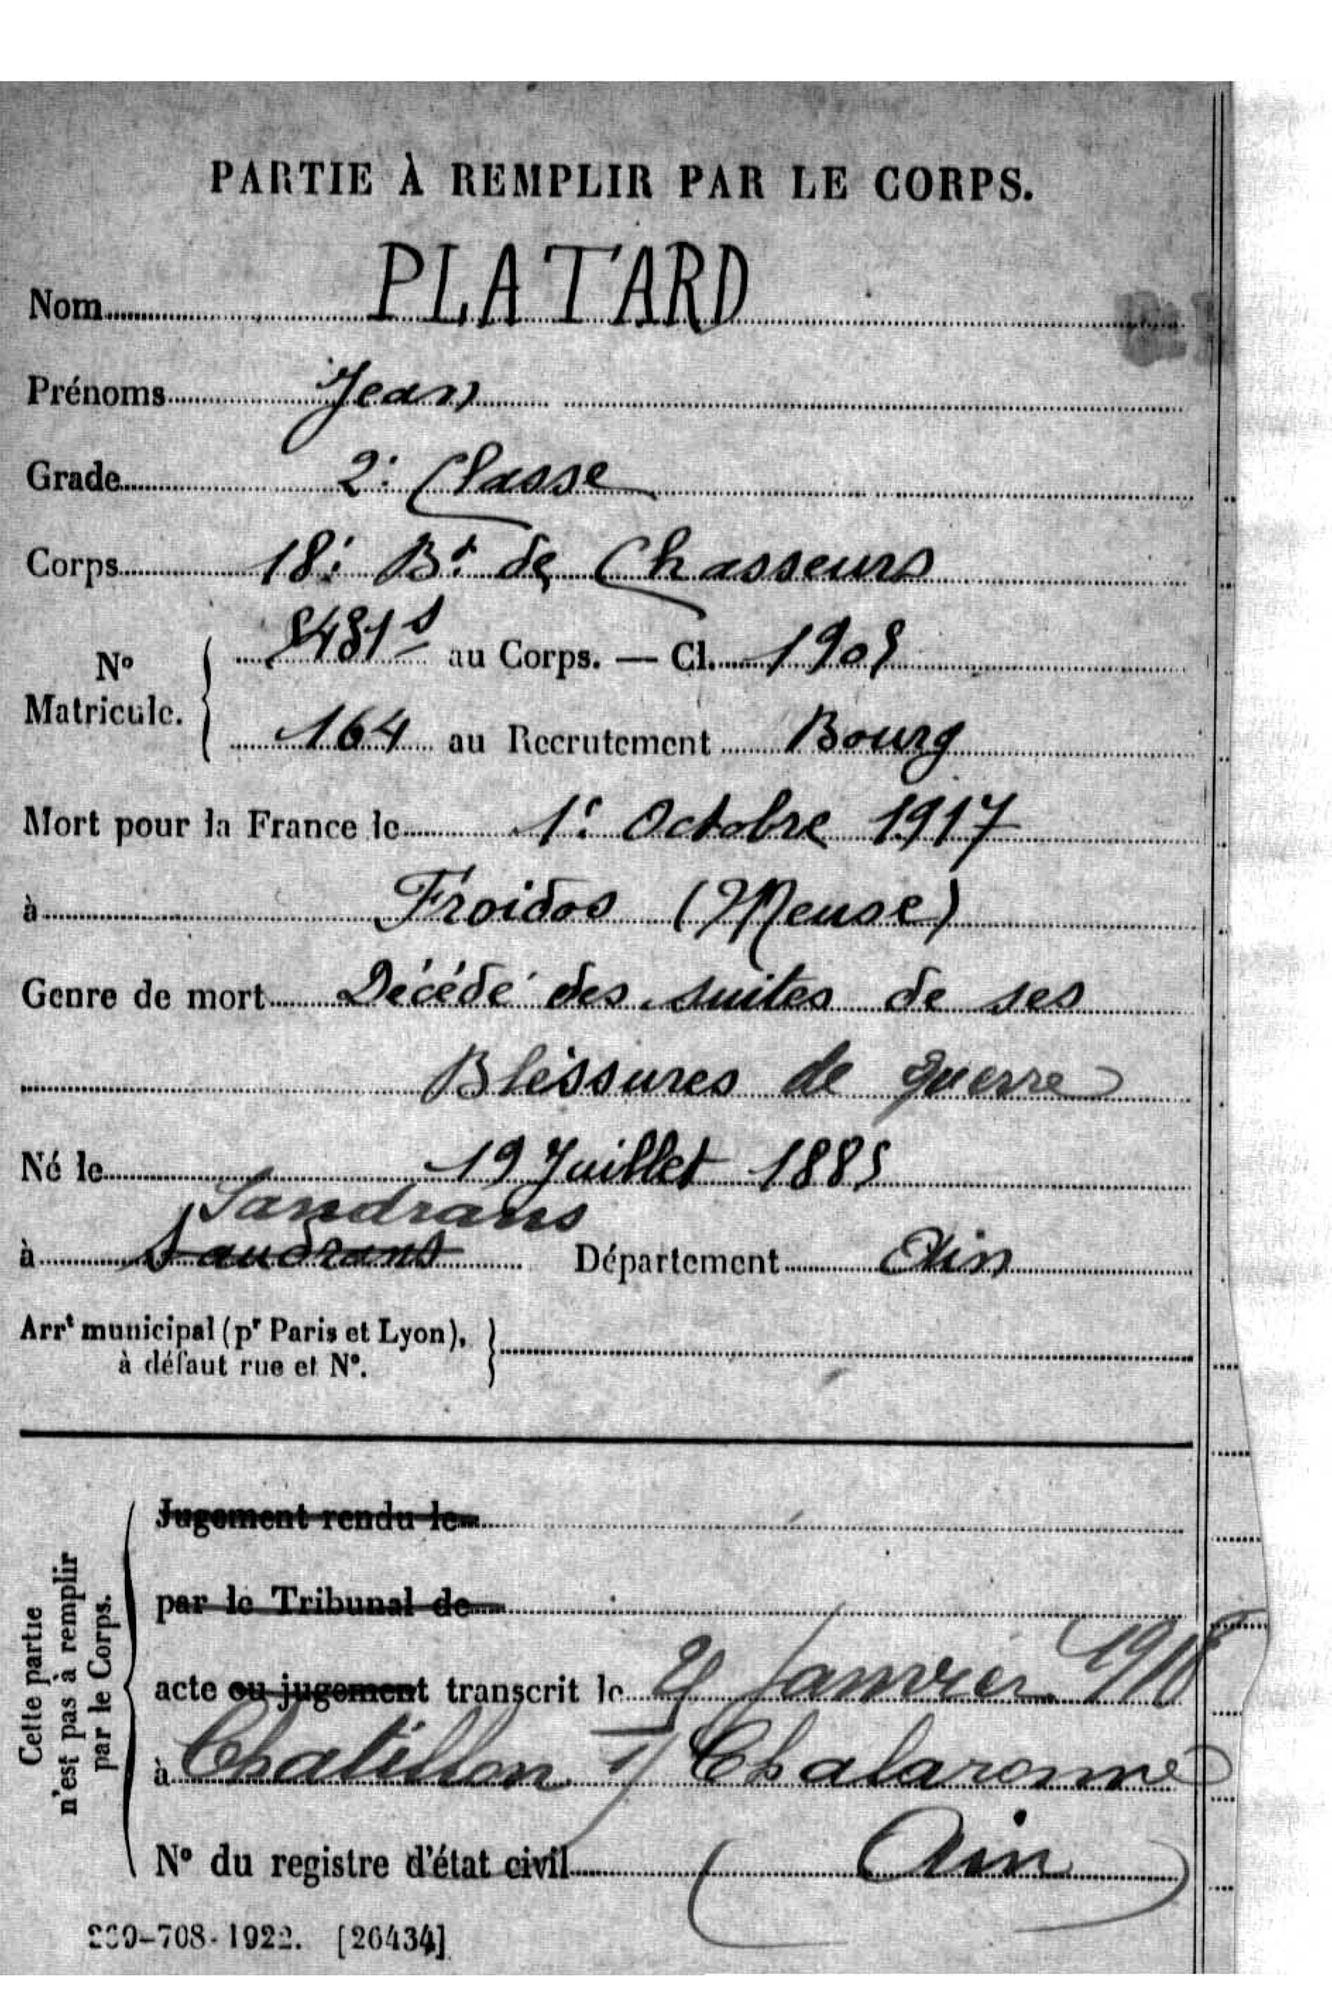 PARTIE À REMPLIR PAR LE CORPS.
Nom PLATARD
Prénoms Jean
Grade 2e Classe
Corps 18e Bn de Chasseurs
No Matricule. au Corps. — Cl. 1905
164 au Recrutement Bourg
Mort pour la France le 1er Octobre 1917
à Froidos (Meuse)
Genre de mort Décédé des suites de ses
Bléssures de guerre
Né le 19 Juillet 1885
Sandrans
à Saudrans Département Ain
Arrt municipal (pr Paris et Lyon),
à défaut rue et No.
Cette partie
n'est pas à remplir
par le Corps.
Jugement rendu le
par le Tribunal de
acte ou jugement transcrit le Janvier 1918
à Chatillon s/ Chalaronne
No du registre d'état civil (Ain)
-708-1922. [26434]